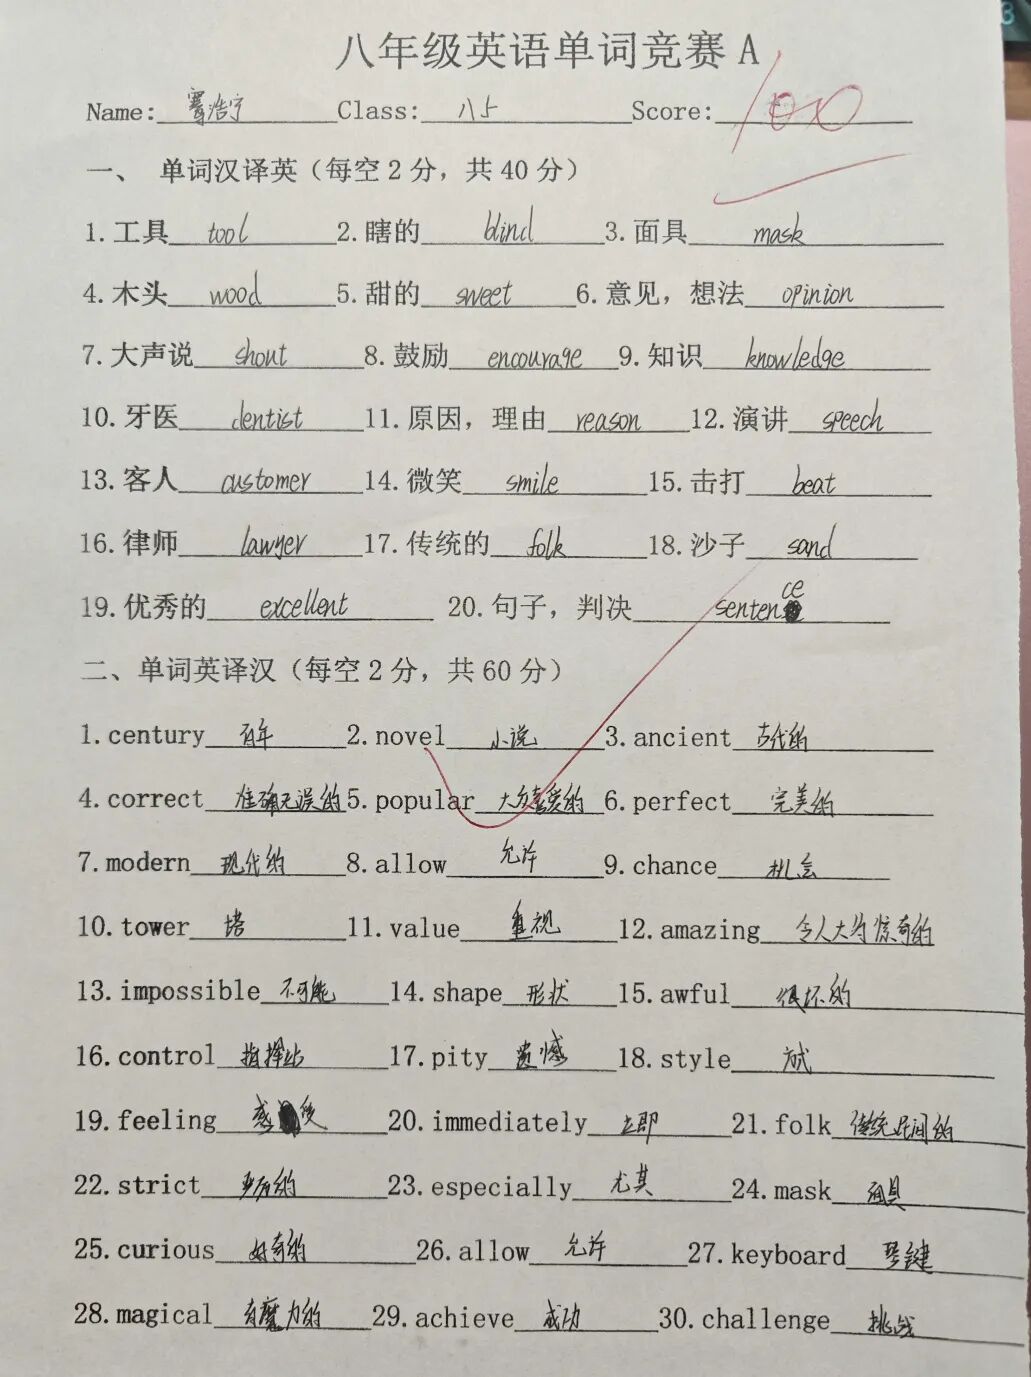 八年级英语单词竞赛 A
Name: 浩宇 Class: 八5 Score: 100
一、 单词汉译英（每空2分，共40分）
1.工具 tool 2.瞎的 blind 3.面具 mask
4.木头 wood 5.甜的 sweet 6.意见，想法 opinion
7.大声说 shout 8.鼓励 encourage 9.知识 knowledge
10.牙医 dentist 11.原因，理由 reason 12.演讲 speech
13.客人 customer 14.微笑 smile 15.击打 beat
16.律师 lawyer 17.传统的 folk 18.沙子 sand
19.优秀的 excellent 20.句子，判决 sentence
二、单词英译汉（每空2分，共60分）
1.century 百年 2.novel 小说 3.ancient 古代的
4.correct 准确无误的 5.popular 大众喜爱的 6.perfect 完美的
7.modern 现代的 8.allow 允许 9.chance 机会
10.tower 塔 11.value 重视 12.amazing 令人大为惊奇的
13.impossible 不可能 14.shape 形状 15.awful 很坏的
16.control 指挥站 17.pity 遗憾 18.style 方式
19.feeling 感受 20.immediately 立即 21.folk 传统民间的
22.strict 严厉的 23.especially 尤其 24.mask 面具
25.curious 好奇的 26.allow 允许 27.keyboard 琴键
28.magical 有魔力的 29.achieve 成功 30.challenge 挑战